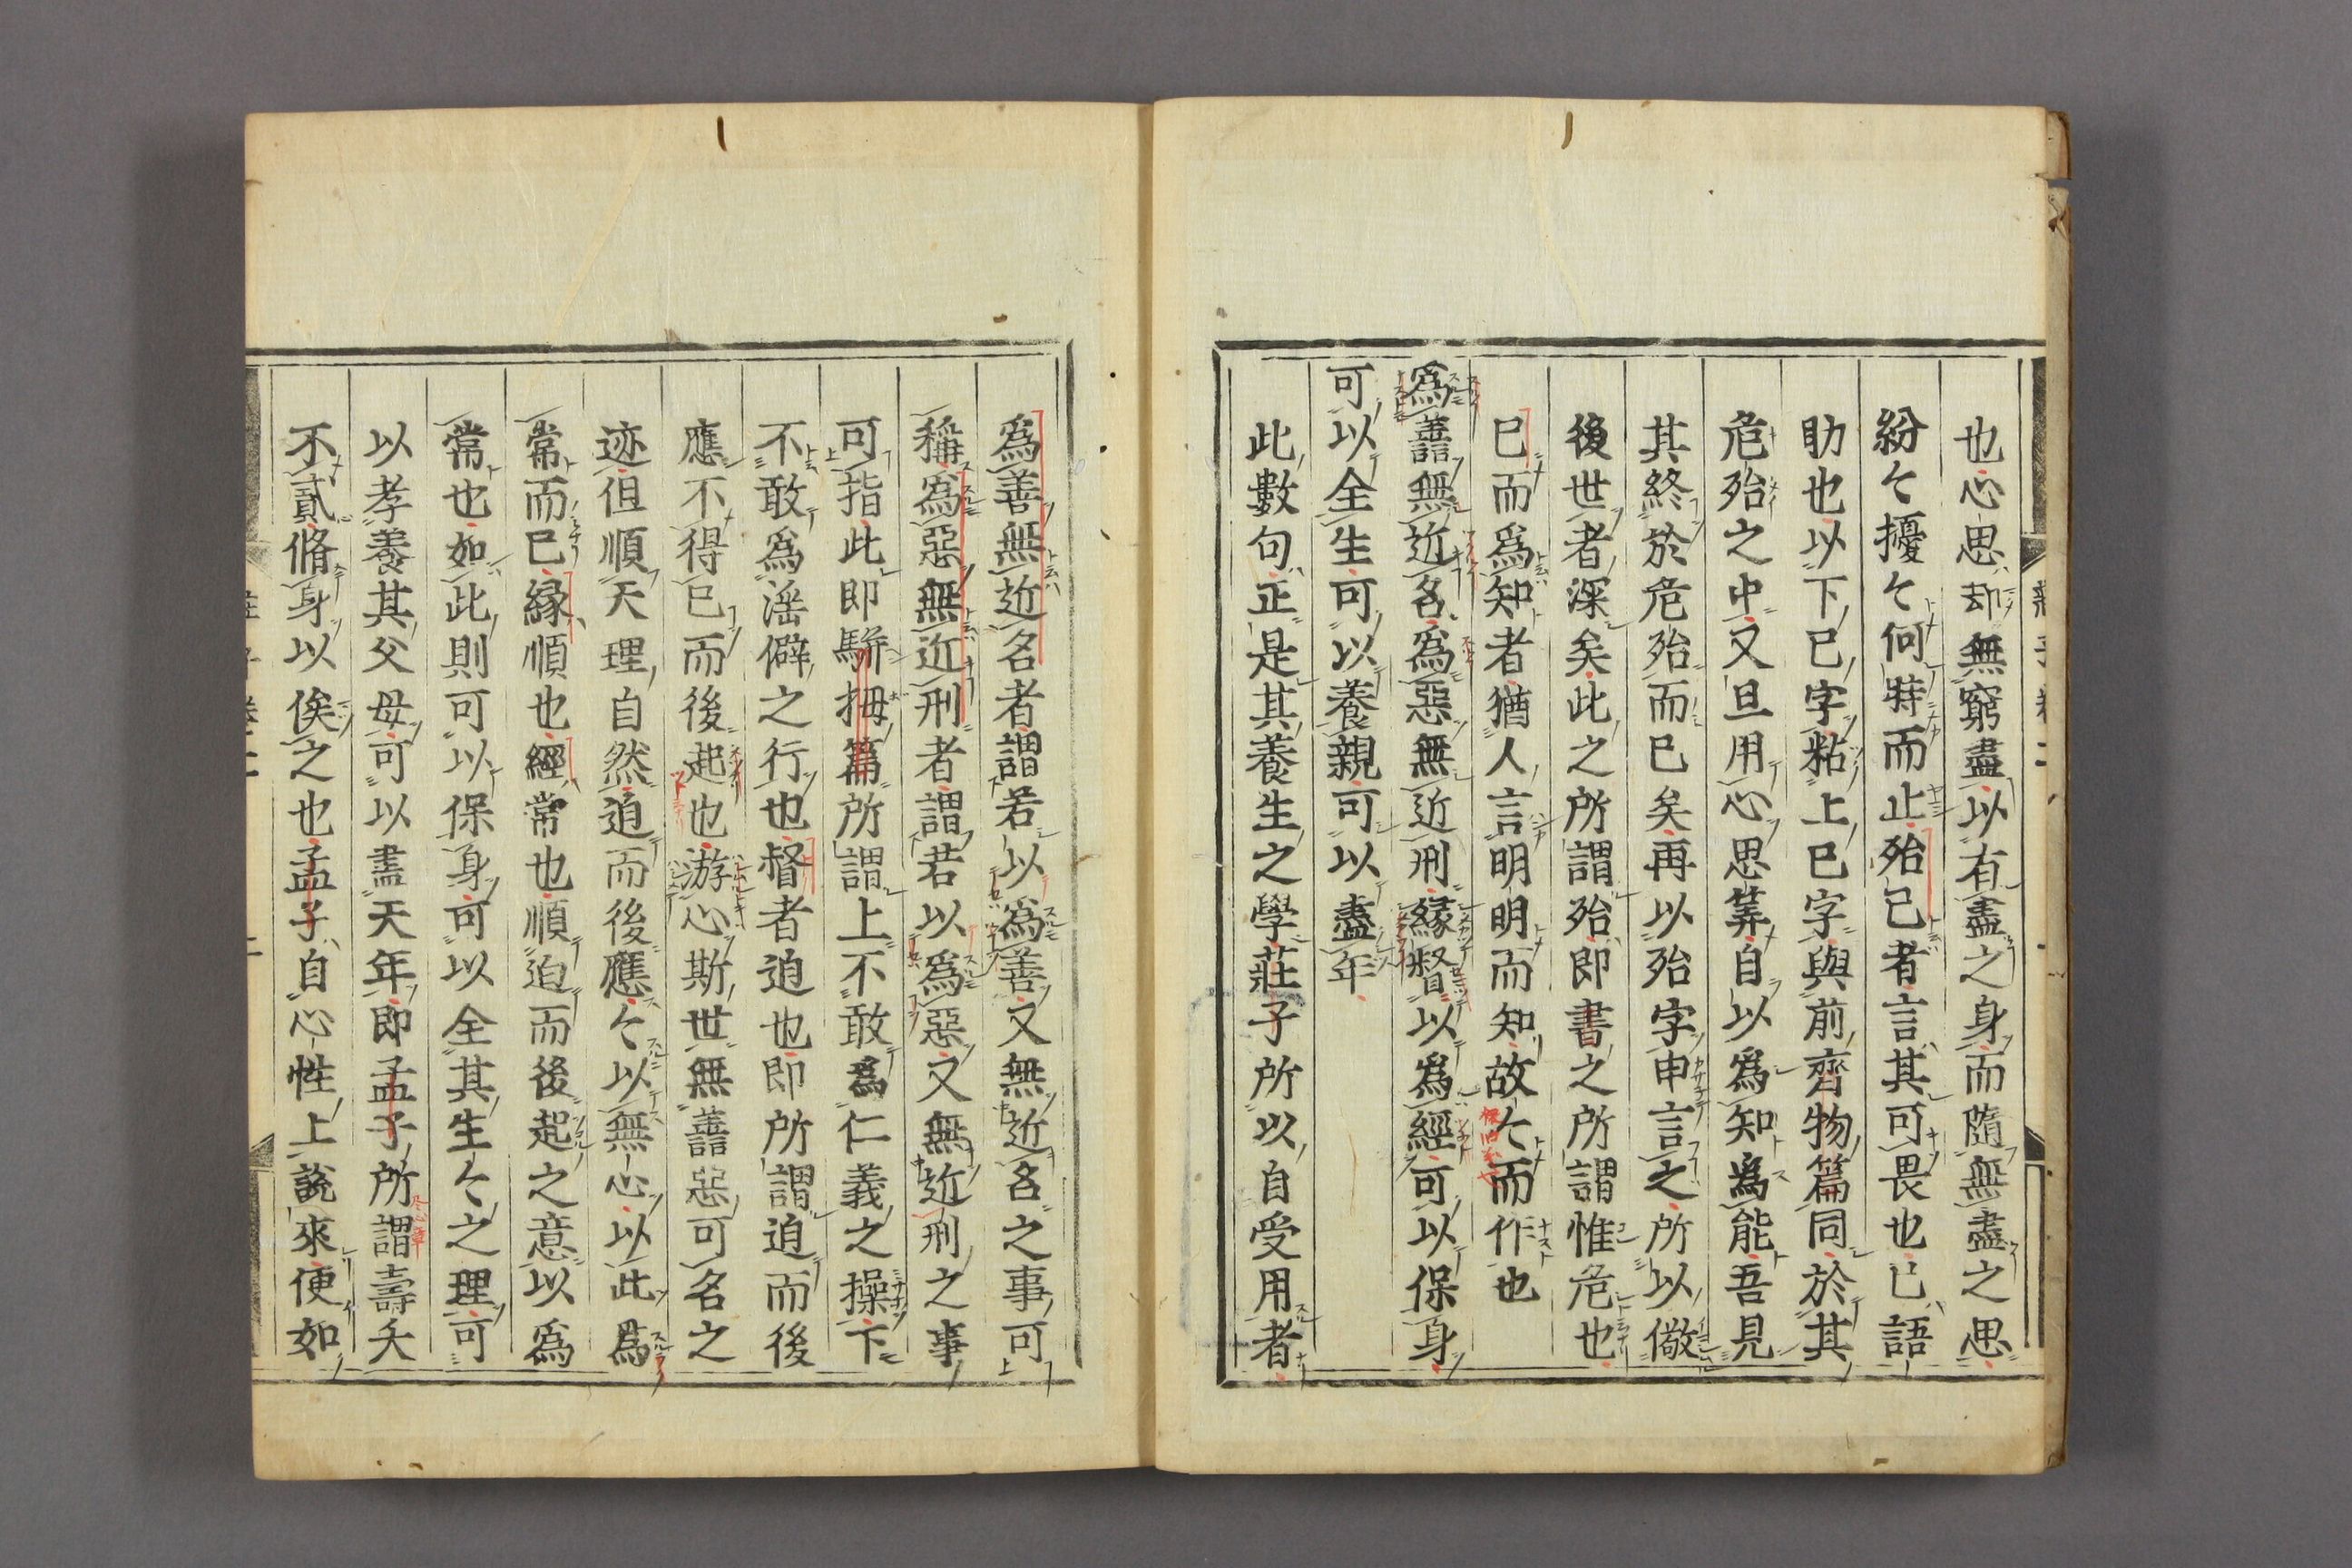 也心思却無窮盡以有盡之身而隨無盡之思
紛々擾々何時而止殆已者言其可畏也已語
助也以下已字粘上已字與前齊物篇同於其
危殆之中又且用心思筭自以爲知爲能吾見
其終於危殆而已矣再以殆字申言之所以儆
後世者深矣此之所謂殆即書之所謂惟危也
已而爲知者猶人言明明而知故々而作也
爲善無近名爲惡無近刑縁督以爲經可以保身
可以全生可以養親可以盡年
此數句正是其養生之學莊子所以自受用者
爲善無近名者謂若以爲善又無近名之事可
稱爲惡無近刑者謂若以爲惡又無近刑之事
可指此即駢拇篇所謂上不敢爲仁義之操下
不敢爲滛僻之行也督者迫也即所謂迫而後
應不得已而後起也游心斯世無善惡可名之
迹但順天理自然迫而後應々以無心以此爲
常而已縁順也經常也順迫而後起之意以爲
常也如此則可以保身可以全其生々之理可
以孝養其父母可以盡天年即孟子所謂壽夭
不貳脩身以俟之也孟子自心性上說來便如